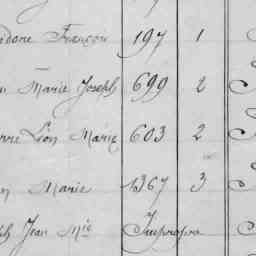 idore François 197 1
n Marie Joseph 699 2
erre Léon Marie 603 2
n Marie 1367 3
ph Jean Mie Impropre